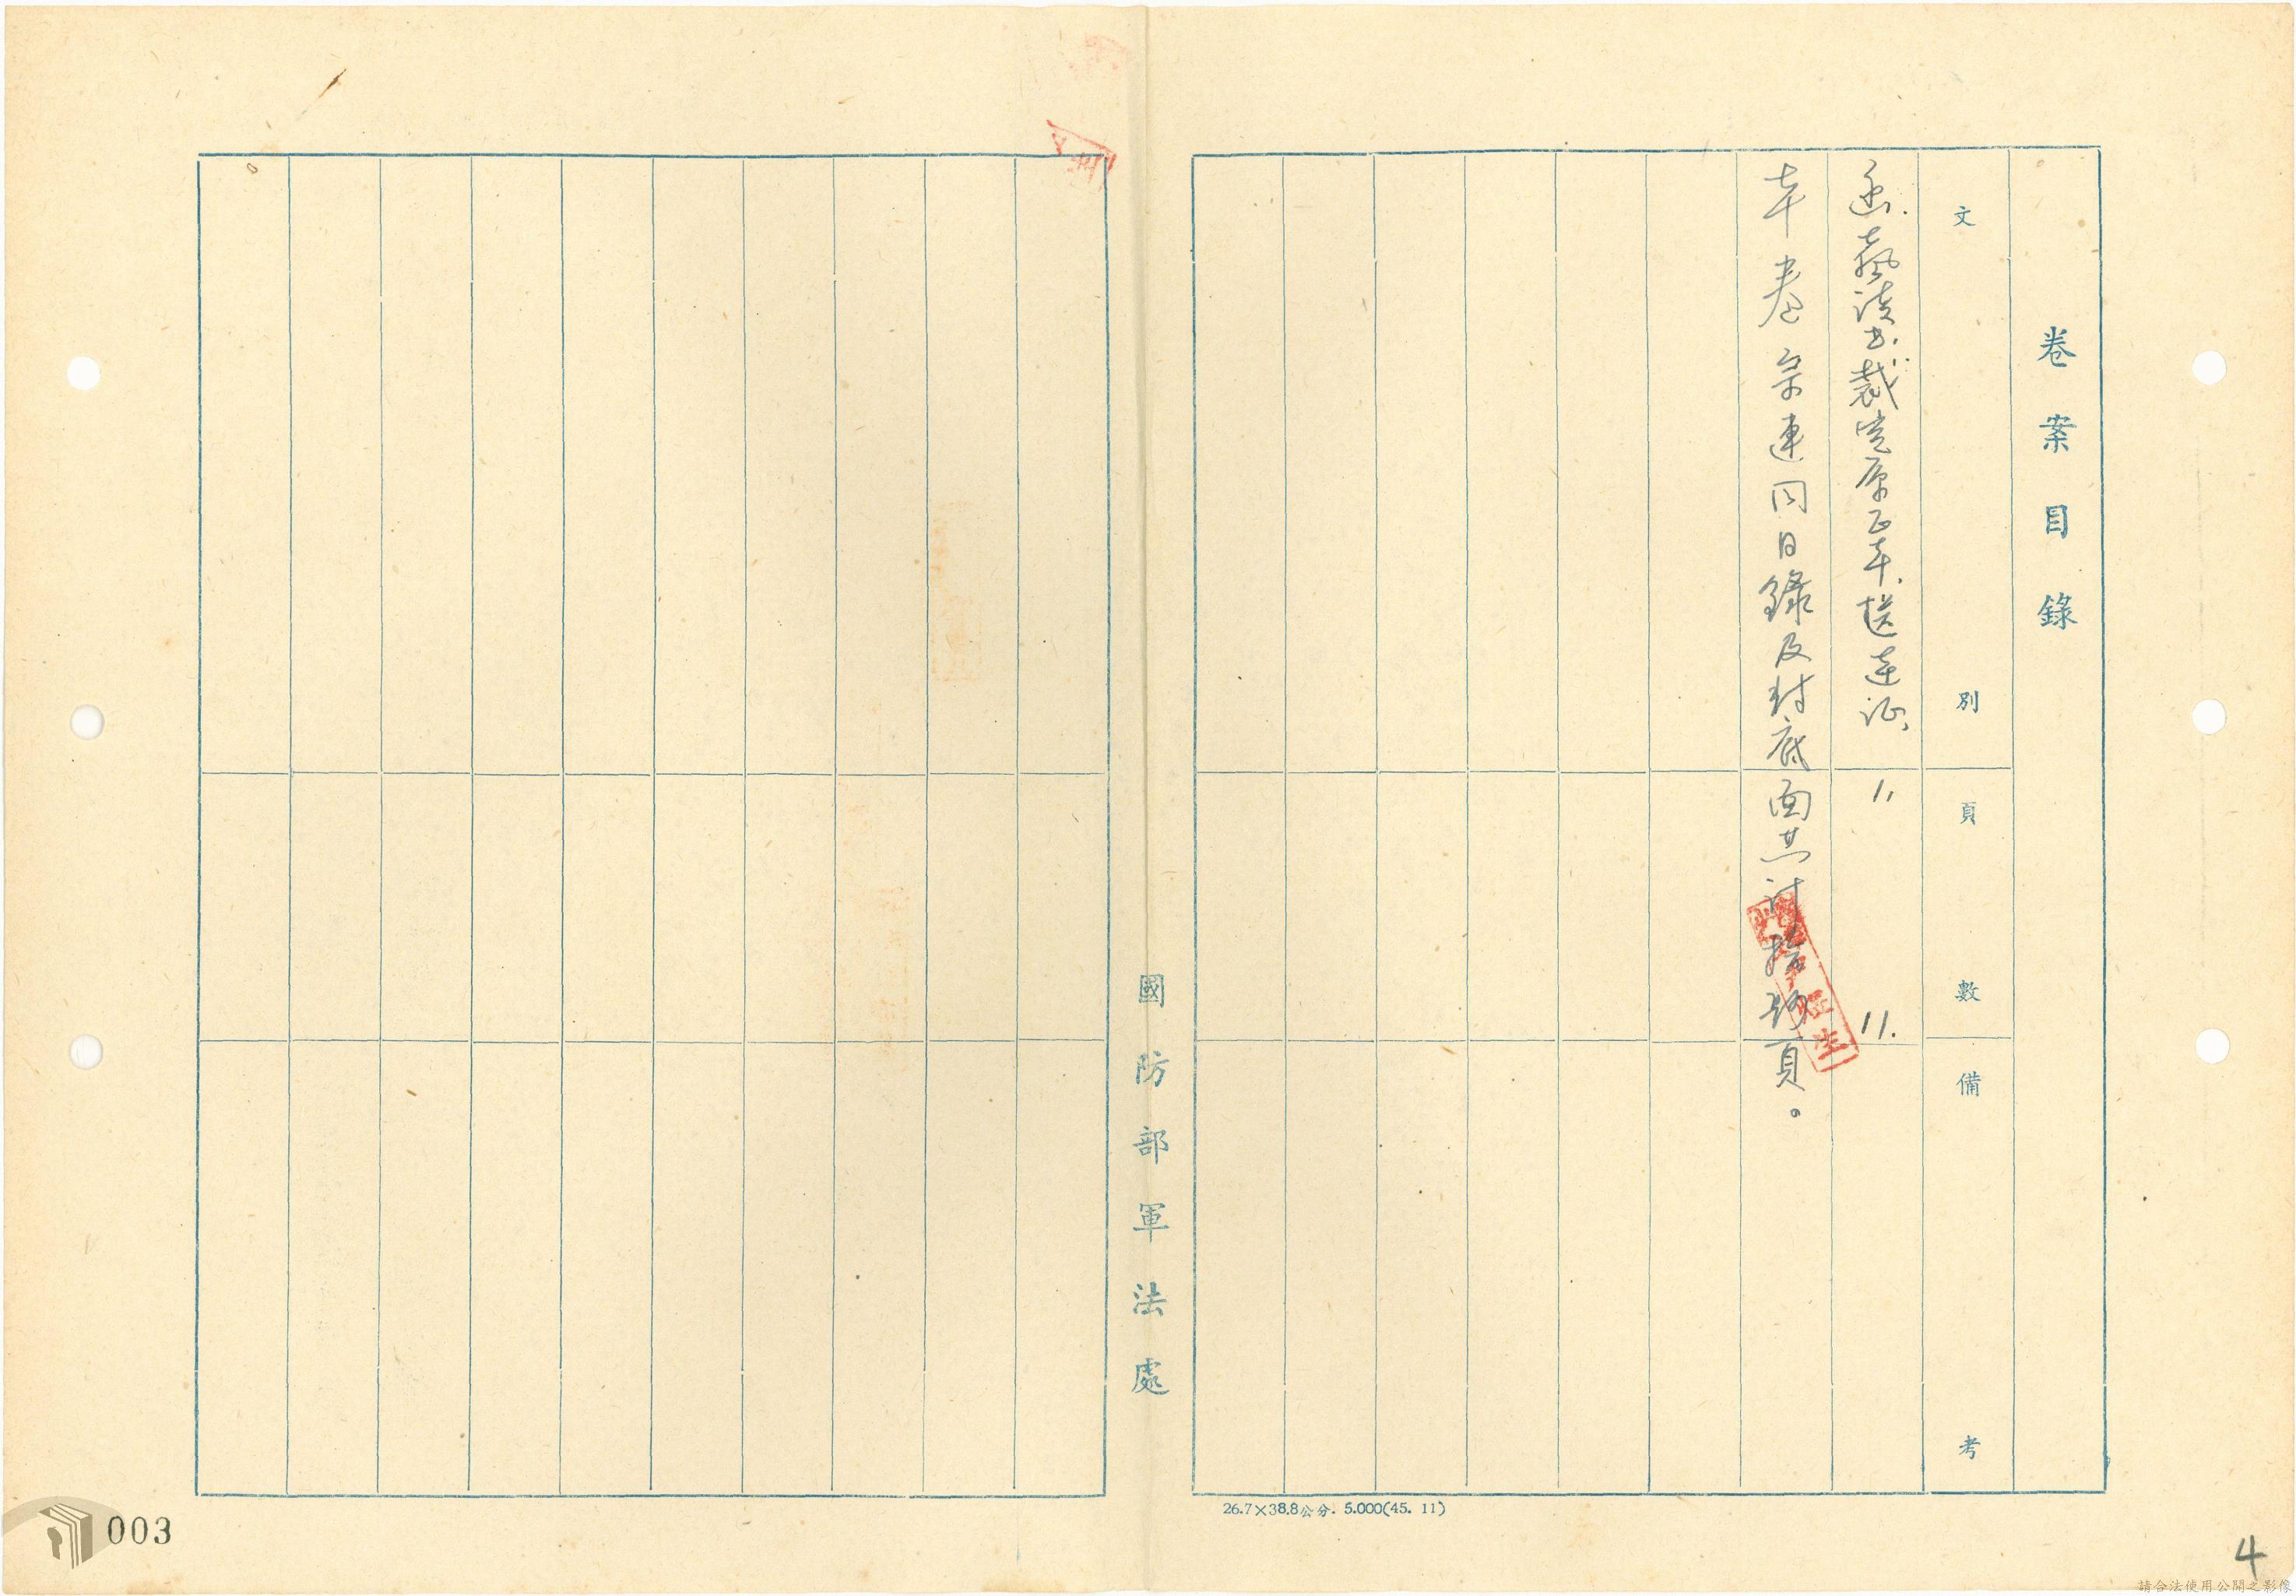 卷案目錄
文別
頁數
備考
函.聲請書.裁定原正本.送達証.
1, 11.
本卷宗連同目錄及封底面共計拾頁。
國防部軍法處
26.7×38.8公分. 5.000(45. 11)
003
4
請合法使用公開之影像